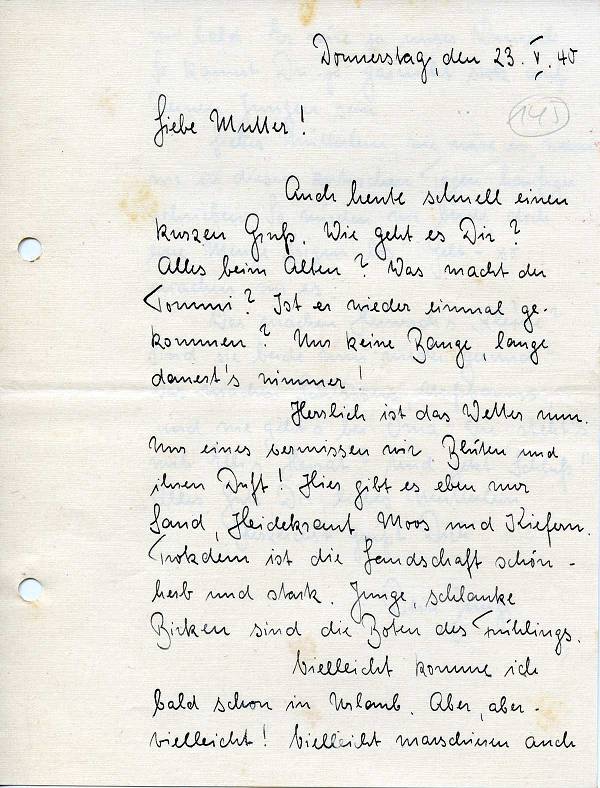 Donnerstag, den 23. V. 40
145
Liebe Mutter!
Auch heute schnell einen
kurzen Gruß. Wie geht es Dir?
Alles beim Alten? Was macht der
Tommi? Ist er wieder einmal ge-
kommen? Nur keine Bange, lange
dauert's nimmer!
Herrlich ist das Wetter nun.
Nur eines vermissen wir Blüten und
ihren Duft! Hier gibt es eben nur
Sand, Heidekraut, Moos und Kiefern.
Trotzdem ist die Landschaft schön-
herb und stark. Junge, schlanke
Birken sind die Boten des Frühlings.
Vielleicht komme ich
bald schon in Urlaub. Aber, aber-
vielleicht! Vielleicht marschieren auch